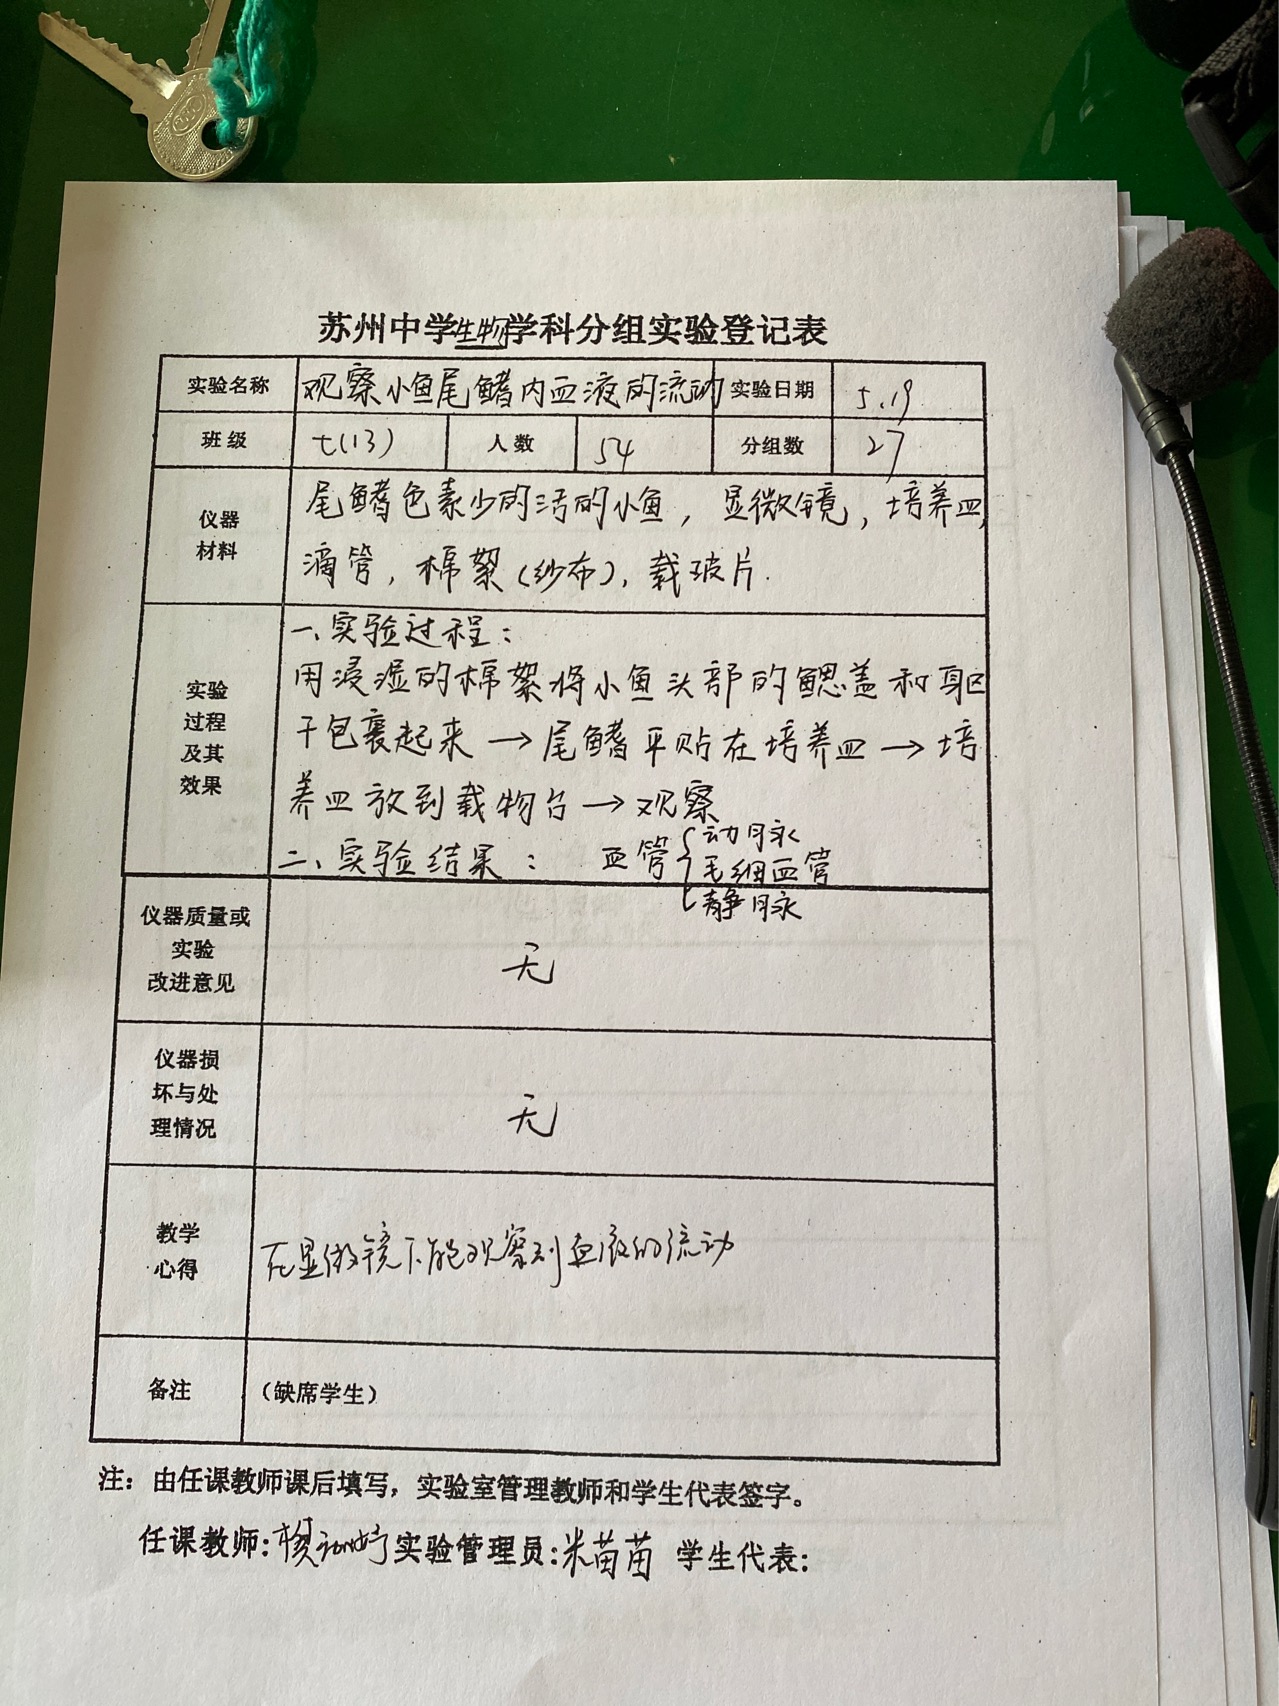 苏州中学生物学科分组实验登记表
实验名称 观察小鱼尾鳍内血液的流动 实验日期 5.19
班级 七(13) 人数 54 分组数 27
仪器
材料
尾鳍色素少的活的小鱼，显微镜，培养皿，
滴管，棉絮(纱布)，载玻片.
实验
过程
及其
效果
一、实验过程：
用浸湿的棉絮将小鱼头部的鳃盖和躯
干包裹起来→尾鳍平贴在培养皿→培
养皿放到载物台→观察
二、实验结果： 血管
动脉
毛细血管
静脉
仪器质量或
实验
改进意见
无
仪器损
坏与处
理情况
无
教学
心得
在显微镜下能观察到血液的流动
备注 （缺席学生）
注：由任课教师课后填写，实验室管理教师和学生代表签字。
任课教师: 实验管理员:米苗苗 学生代表: